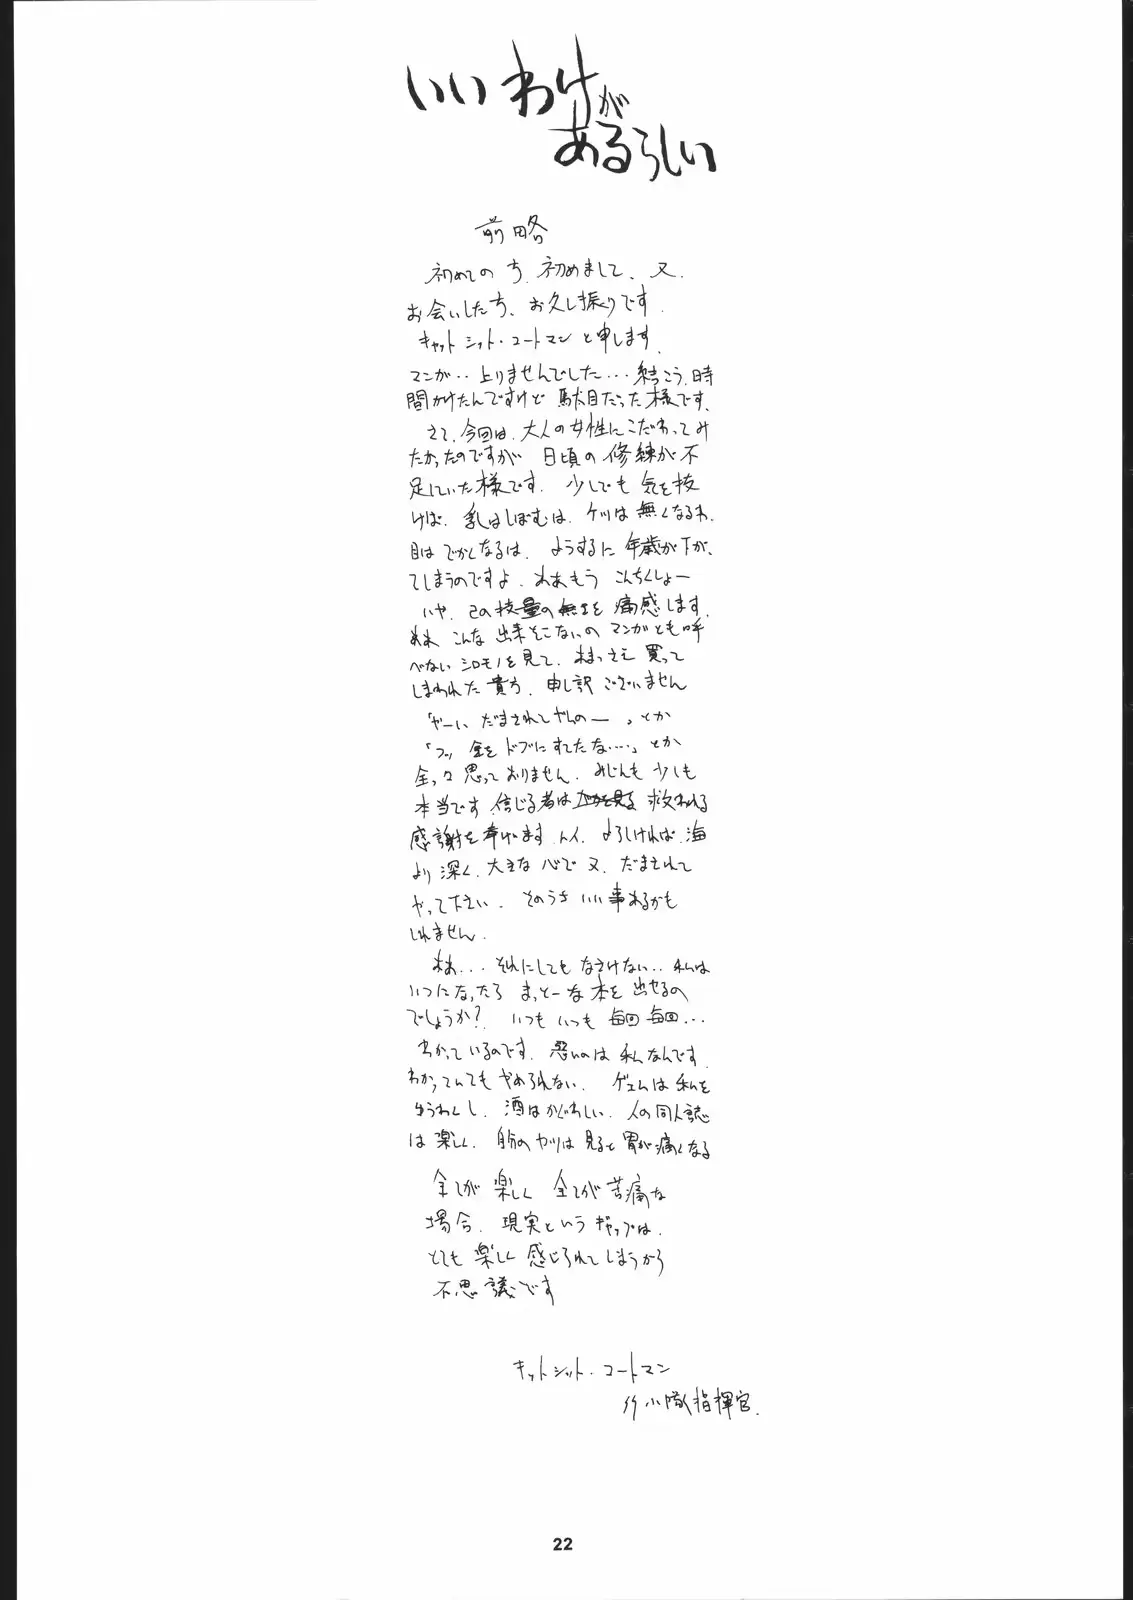 いいわけが
あるらしい
前略
初めての方、初めまして、又、
お会いした方、お久し振りです。
キャットシット・コートマンと申します。
マンガ‥上りませんでした…結こう、時
間かけたんですけど 駄目だった様です。
さて、今回は、大人の女性にこだわってみ
たかったのですが 日頃の修練が不
足していた様です。少しでも 気を抜
けば、乳はしぼむは、ケツは無くなるわ、
目は でかくなるは、ようするに 年歳が下が、
てしまうのですよ。わあもう こんちくしょー
いや、この技量の無さを 痛感します。
ああ、こんな 出来そこないの マンガとも呼
べない シロモノを見て、あまつさえ 買って
しまわれた 貴方、申し訳ございません
「やーい、だまされてやんのー」とか
「フッ 金を ドブにすてたな‥‥」とか
全っ々 思っておりません、みじんも 少しも
本当です 信じる者は 救われる
感謝を 奉げます よろしければ、海
より 深く、大きな 心で 又、だまされて
やって下さい。そのうち いい事あるかも
しれません。
ああ… それにしても なさけない‥ 私は
いつになったら まっとーな 本を 出せるの
でしょうか? いつも いつも 毎回 毎回…
わかっているのです。悪いのは 私なんです。
わかっていても やめられない。ゲェムは 私を
ゆうわくし、酒は かぐわしい、人の 同人誌
は 楽しく、自分の ヤツは 見ると 胃が 痛くなる
全てが 楽しく 全てが 苦痛な
場合、現実という ギャップは、
とても 楽しく 感じられて しまうから
不思議です
キャットシット・コートマン
小隊指揮官。
22